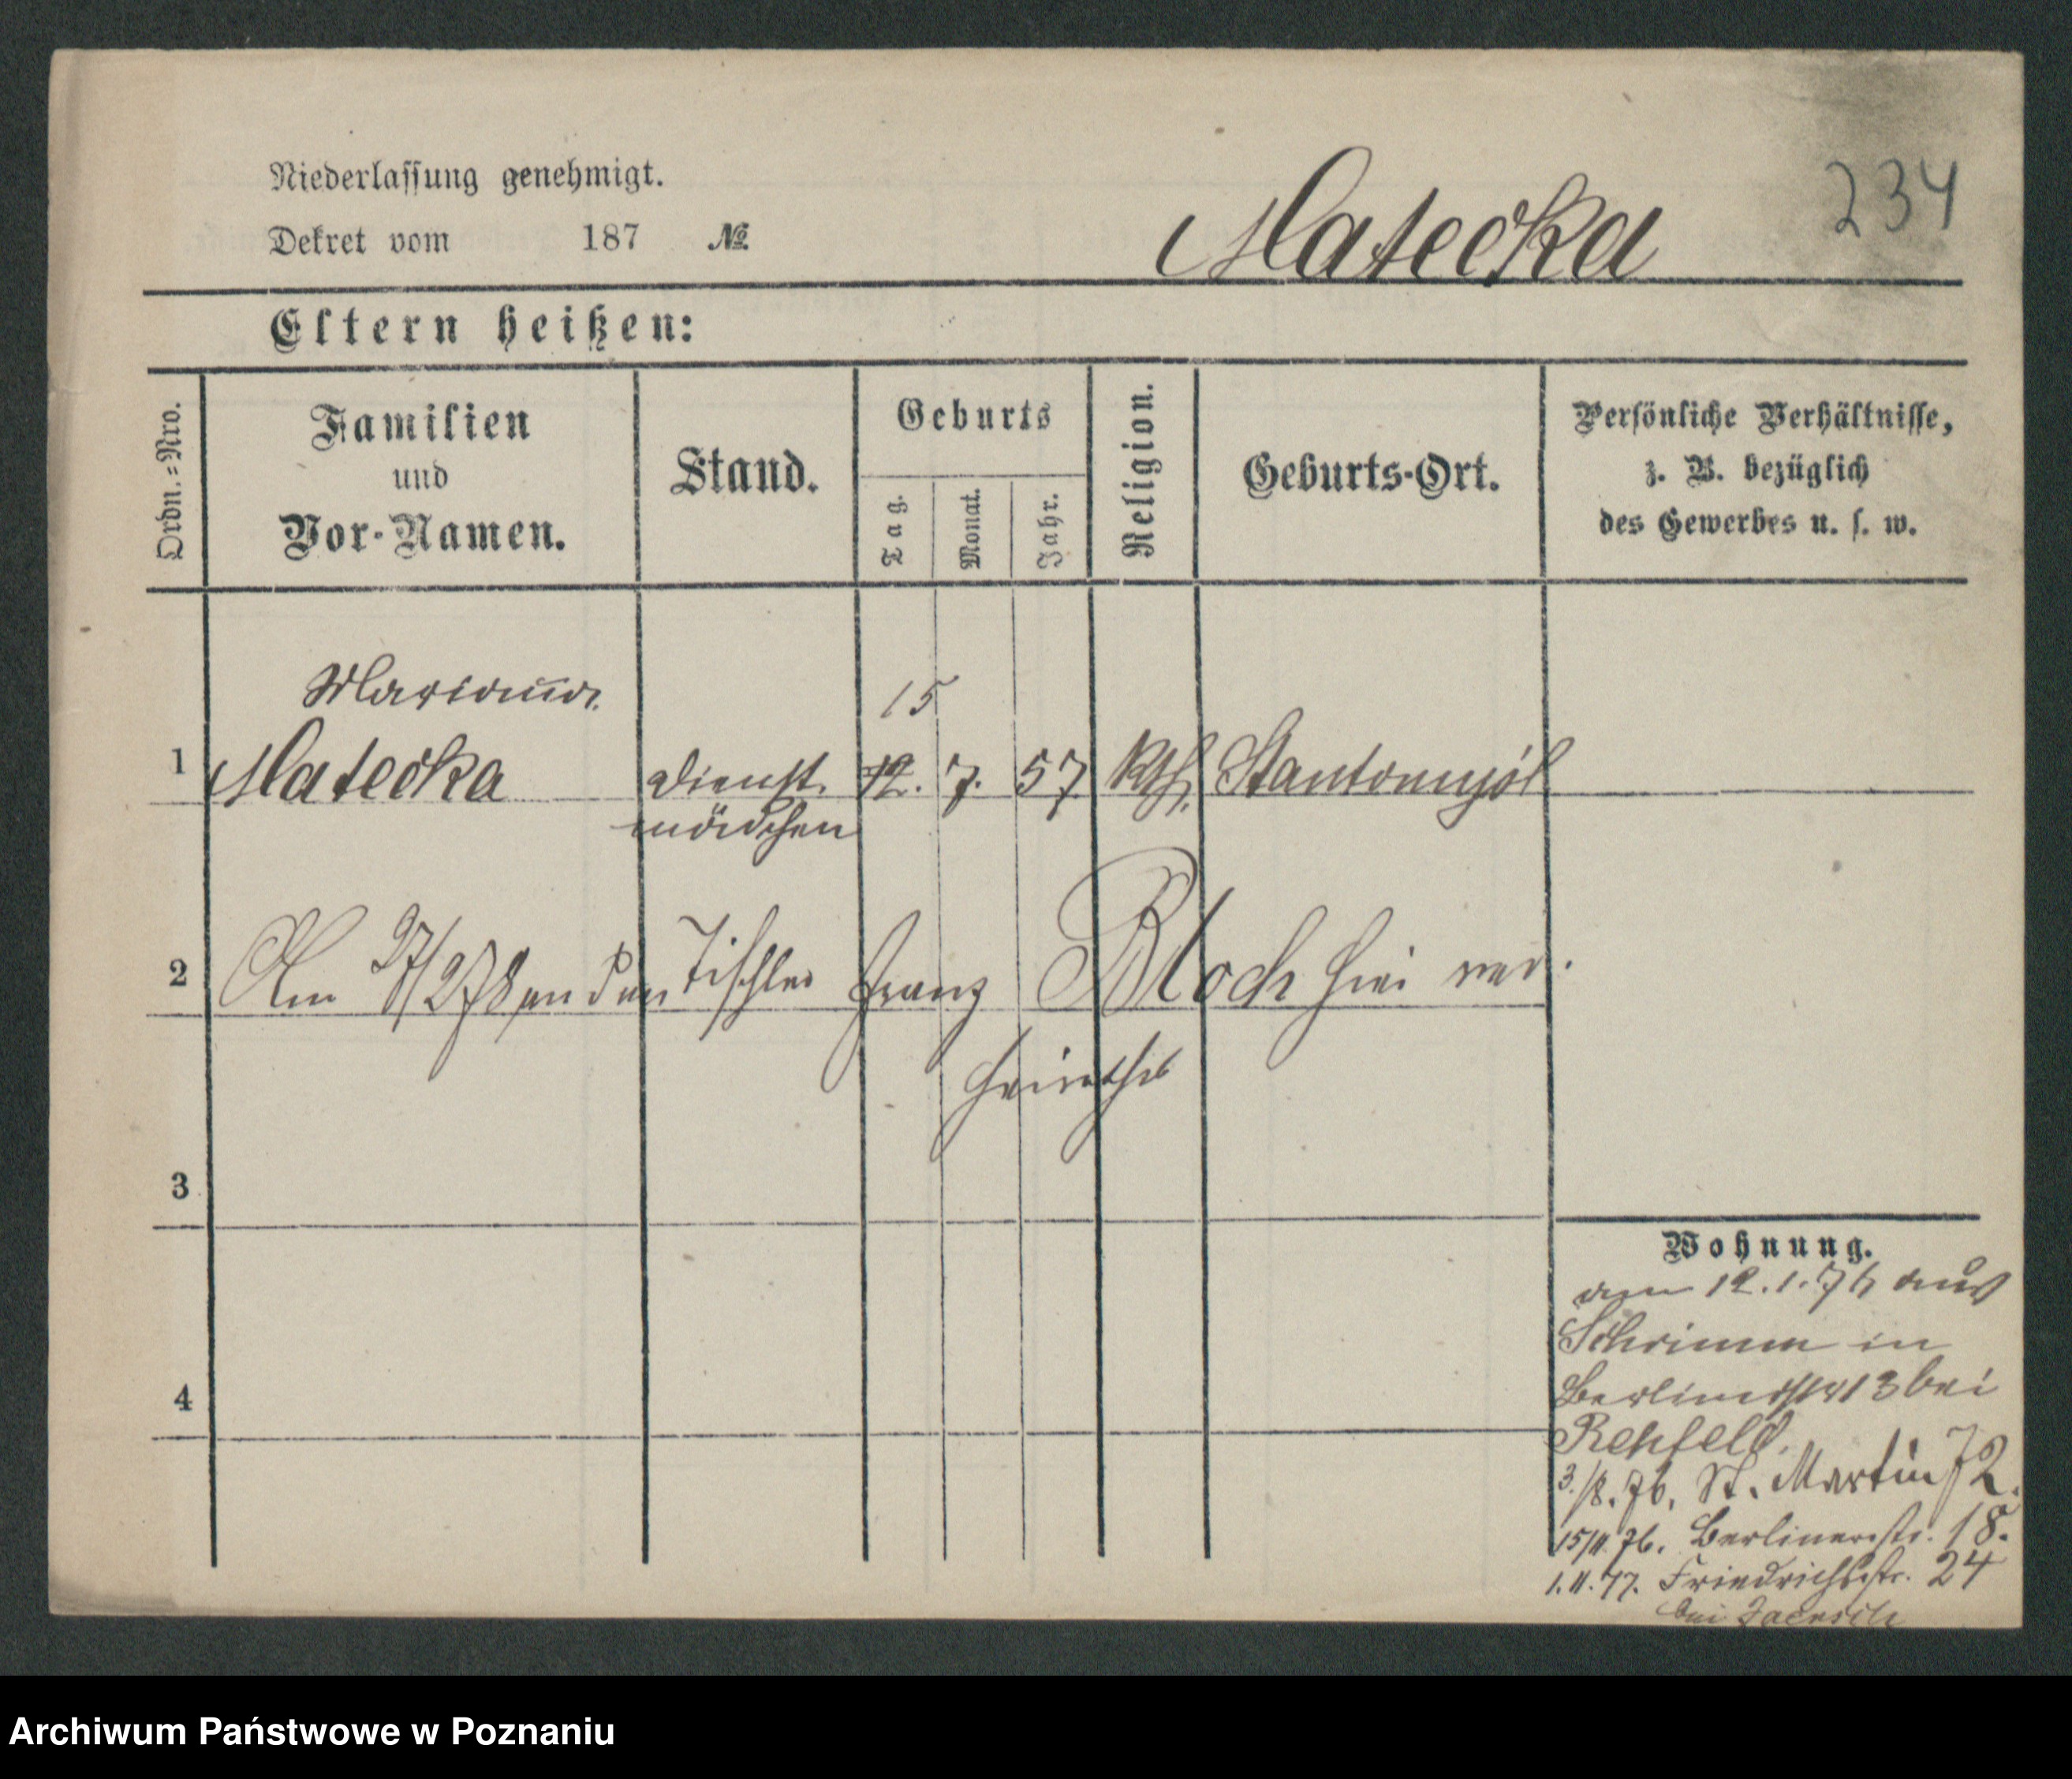 Niederlassung genehmigt.
Dekret vom 187 № Matecka 234
Eltern heißen:
Ordn.=Nro.
Familien
und
Vor-Namen.
Stand.
Geburts
Tag.
Monat.
Jahr.
Religion.
Geburts-Ort.
Persönliche Verhältnisse,
z. B. bezüglich
des Gewerbes u. s. w.
Marianna 15
1 Matecka Dienst. 12. 7. 57 kth.
mädchen
2 Am an den Tischler Franz Bloch hier ver.
heirathet
3
4
Wohnung.
am 12.1.76 aus
Schrimm in
Berlinerstr 13 bei
Rehfeld.
3./8.76. St. Martin 72.
15/11.76. Berlinerstr. 18.
1.11.77. Friedrichsstr. 24
bei
Archiwum Państwowe w Poznaniu